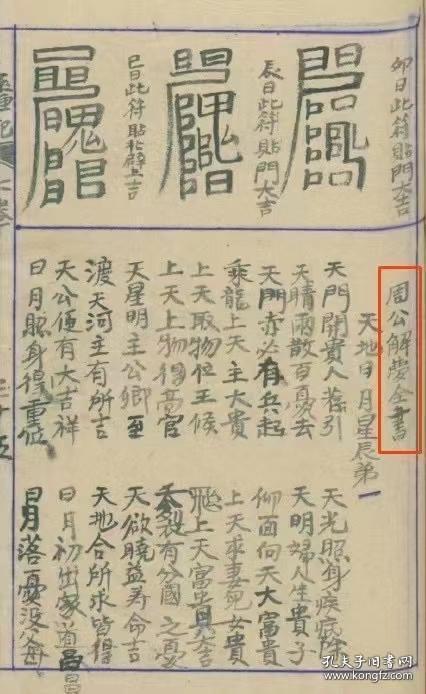 卯日此符貼門大吉
辰日此符貼門大吉
巳日此符貼於壁上吉
周公解夢全書
天地日月星辰弟一
天門開貴人荐引
天光照身疾病除
天晴雨散百憂去
天明婦人生貴子
天門赤必有兵起
仰面向天大富貴
乘龍上天主大貴
上天求妻兒女貴
上天取物位王候
飛上天富貴大吉
上天上物得高官
天裂有分國之憂
天星明主公卿至
天欲曉益寿命吉
渡天河主有所吉
天地合所求皆得
天公便有大吉祥
日月初出家道昌
日月照身得重位
日月落憂沒父母
孔夫子旧书网
www.kongfz.com